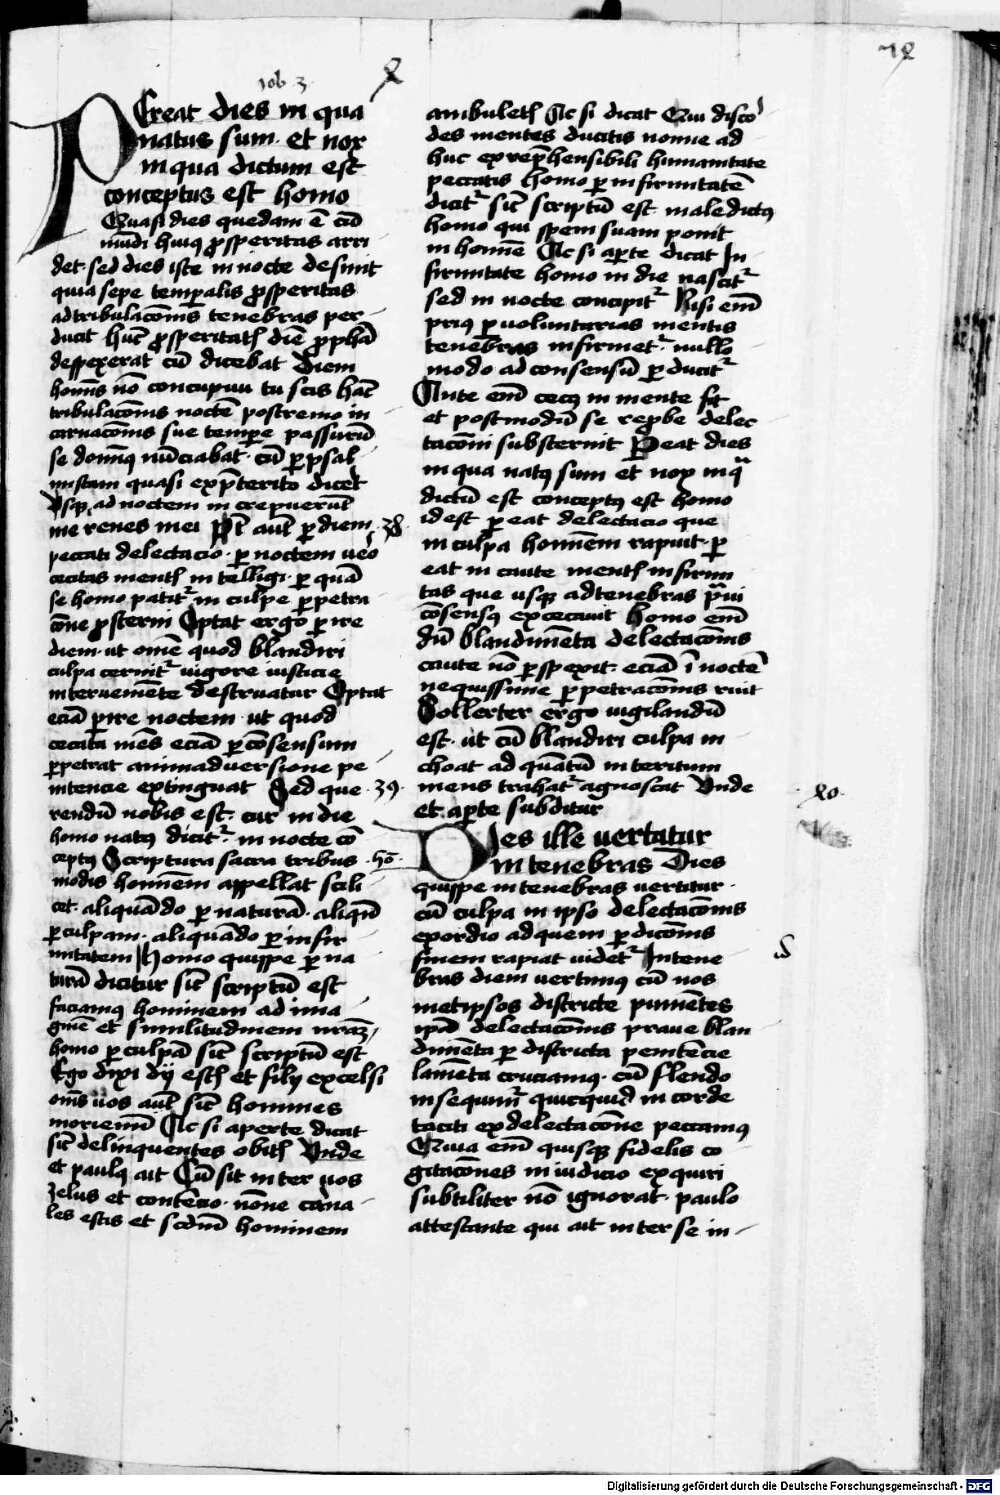 Job 3
PEreat dies in qua
natus sum. et nox
in qua dictum est
conceptus est homo
Quasi dies quedam ē cū
mūdi huiꝰ ꝓsperitas arri
det. sed dies iste in nocte desinit
quia sepe temꝑalis ꝓsperitas
ad tribulacōnis tenebras per
ducit hūc ꝓsperitatꝭ diē ꝓphā
despexerat cū dicebat Diem
homīs nō concupiui tu scis hāc
tribulacōnis noctē postremo in
carnacōnis sue tempe passurū
se domīꝰ nūciabat. cū ꝑ psal
mistam quasi ex p̄terito dicēt
Vsqꝫ ad noctem increpuerūt
me renes mei Pōt autē ꝑ diem 38
peccati delectacio. ꝑ noctem ueō
cecitas mentꝭ intelligi. ꝑ quā
se homo patitᷣ in culpe ꝑpetra
cōne ꝓsterni Optat ergo ꝑire
diem. ut omē quod blandiri
culpa cernitᷣ uigore iusticie
interueniēte destruatur Optat
eciā ꝑire noctem ut quod
cecata mēs eciā ꝑ cōsensum
ꝑpetrat animaduersione pe
nitencie extinguat Sed que 39
rendū nobis est. cur in die
homo natꝰ dicitᷣ. in nocte cō
ceptꝰ Scriptura sacra tribus hō
modis hominēm appellat scili
cet. aliquādo ꝑ naturā. aliqn̄
ꝑ culpam. aliquādo ꝑ infir
mitatem Homo quippe ꝑ na
turā dicitur sic̄ scriptū est
faciamꝰ hominem ad ima
ginē et similitudinem nrāꝫ
homo ꝑ culpā sic̄ scriptū est
Ego dixi dij estꝭ et filij excelsi
om̄s uos autē sic̄ homines
moriemī Ac si aperte dicat
sic̄ delinquentes obitꝭ Vnde
et paulꝰ ait Cū sit inter uos
zelus et contēcio. nōne carna
les estis et scdm̄ hominem
ambulatꝭ Ac si dicat Qui disco
des mentes ducitis nonne ad
huc ex rep̄hensibili humanitate
peccatis homo ꝑ infirmitatē
dicitᷣ sic̄ scriptū est maledictꝰ
homo qui spem suam ponit
in homīe Ac si aꝑte dicat In
firmitate homo in die nascitᷣ
sed in nocte concipitᷣ Nisi enī
priꝰ ꝑ uoluntarias mentis
tenebras infirmetᷣ. nullo
modo ad consensū ꝑducitᷣ
Ante enī cecꝰ in mente fit
et postmodū se reꝓbe delec
tacōni substernit Pereat dies
in qua natꝰ sum et nox in qᵃ
dictū est conceptꝰ est homo
id est ꝑeat delectacio que
in culpa hominēm rapuit. ꝑ
eat incaute mentꝭ infirmi
tas que usqꝫ ad tenebras praui
cōsensꝰ excecauit Homo enī
dū blandimēta delectacōnis
caute nō ꝑspexit. eciā ī noctē
nequissime ꝑpetracōnis ruit
Sollerter ergo uigilandū
est. ut cū blandiri culpa in
choat ad quātū interitum
mens trahatᷣ agnoscat Vnde
et aꝑte subditur
40
DIes ille uertatur
in tenebras Dies
quippe in tenebras uertitur.
cū culpa in ipso delectacōnis
exordio ad quem ꝑdicōnis
finem rapiat uidetᷣ In tene
bras diem uertimꝰ cū nos
metipsos districte puniētes
ip̄ā delectacōnis praue blan
dimēta ꝑ districta penitēcie
lamēta cruciamꝰ. cū flendo
insequimᷣ quicquid in corde
taciti ex delectacōne peccamꝰ
Quia enī quisqꝫ fidelis co
gitacōnes in iudicio exquiri
subtiliter nō ignorat. paulo
attestante qui ait inter se in
Digitalisierung gefördert durch die Deutsche Forschungsgemeinschaft - DFG